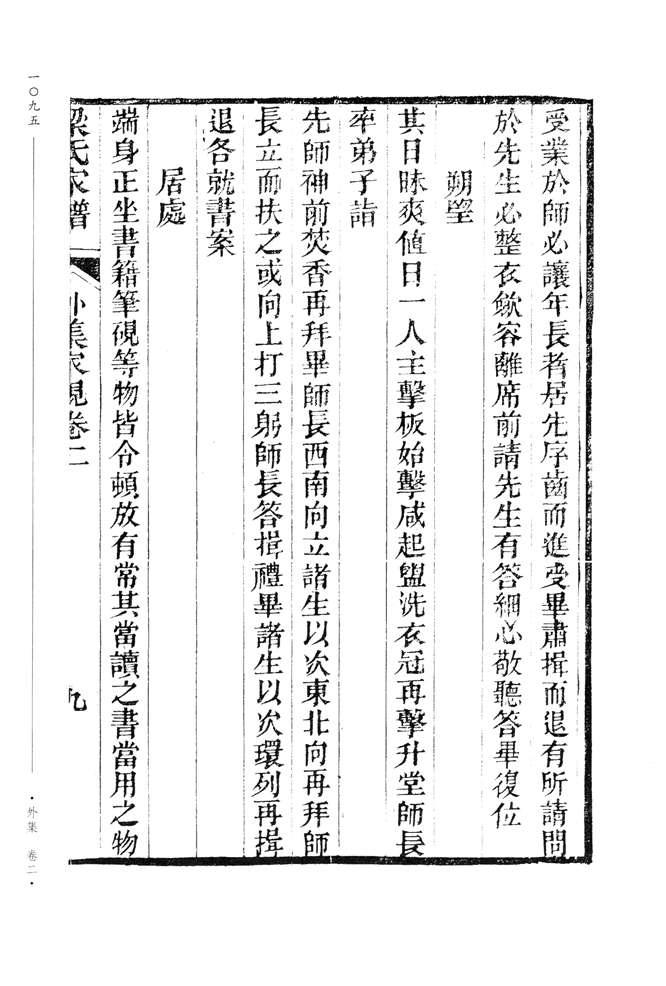 受業於師必讓年長者居先序齒而進受畢肅揖而退有所請問
於先生必整衣歛容離席前請先生有答細必敬聽答畢復位
朔望
其日昧爽值日一人主擊板始擊咸起盥洗衣冠再擊升堂師長
率弟子詣
先師神前焚香再拜畢師長西南向立諸生以次東北向再拜師
長立而扶之或向上打三躬師長答揖禮畢諸生以次環列再揖
退各就書案
居處
端身正坐書籍筆硯等物皆令頓放有常其當讀之書當用之物
梁氏家譜 外集家規卷二 九
一〇九五
·外集 卷二·